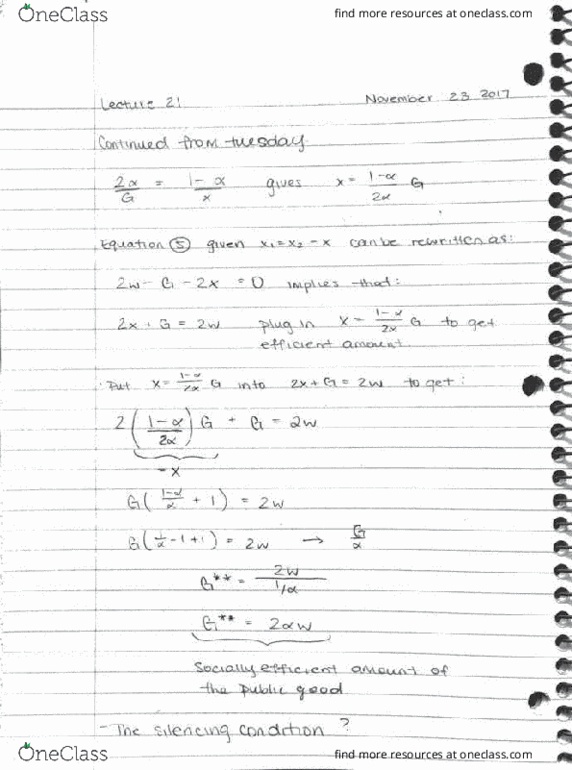 OneClass
find more resources at oneclass.com
Lecture 21
November 23 2017
Continued from tuesday
2α/G = 1-α/x gives x = 1-α/2α G
Equation ⑤ given x₁=x₂ - x can be rewritten as:
2w - G - 2x = 0 implies that:
2x + G = 2w plug in x = 1-α/2α G to get
efficient amount.
Put x = 1-α/2α G into 2x + G = 2w to get:
2(1-α/2α)G + G = 2w
- x
G(1-α/α + 1) = 2w
G(1/α - 1 + 1) = 2w → G/α
G** = 2w/1/α
G** = 2αw
Socially efficient amount of
the public good
- The silencing condition ?
OneClass
find more resources at oneclass.com